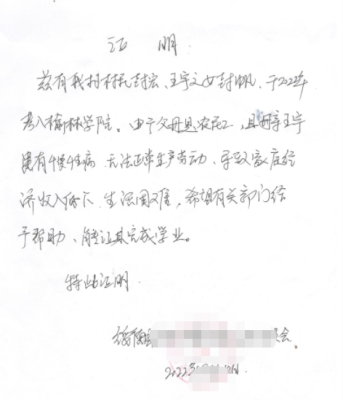 证 明
兹有我村村民封宏、王宇之女封帆，于2022年
考入榆林学院。由于父母是农民工，且母亲王宇
患有慢性病 无法正常生产劳动，导致家庭经
济收入低下 生活困难，希望有关部门给
予帮助、能让其完成学业。
特此证明.
会。
2022年